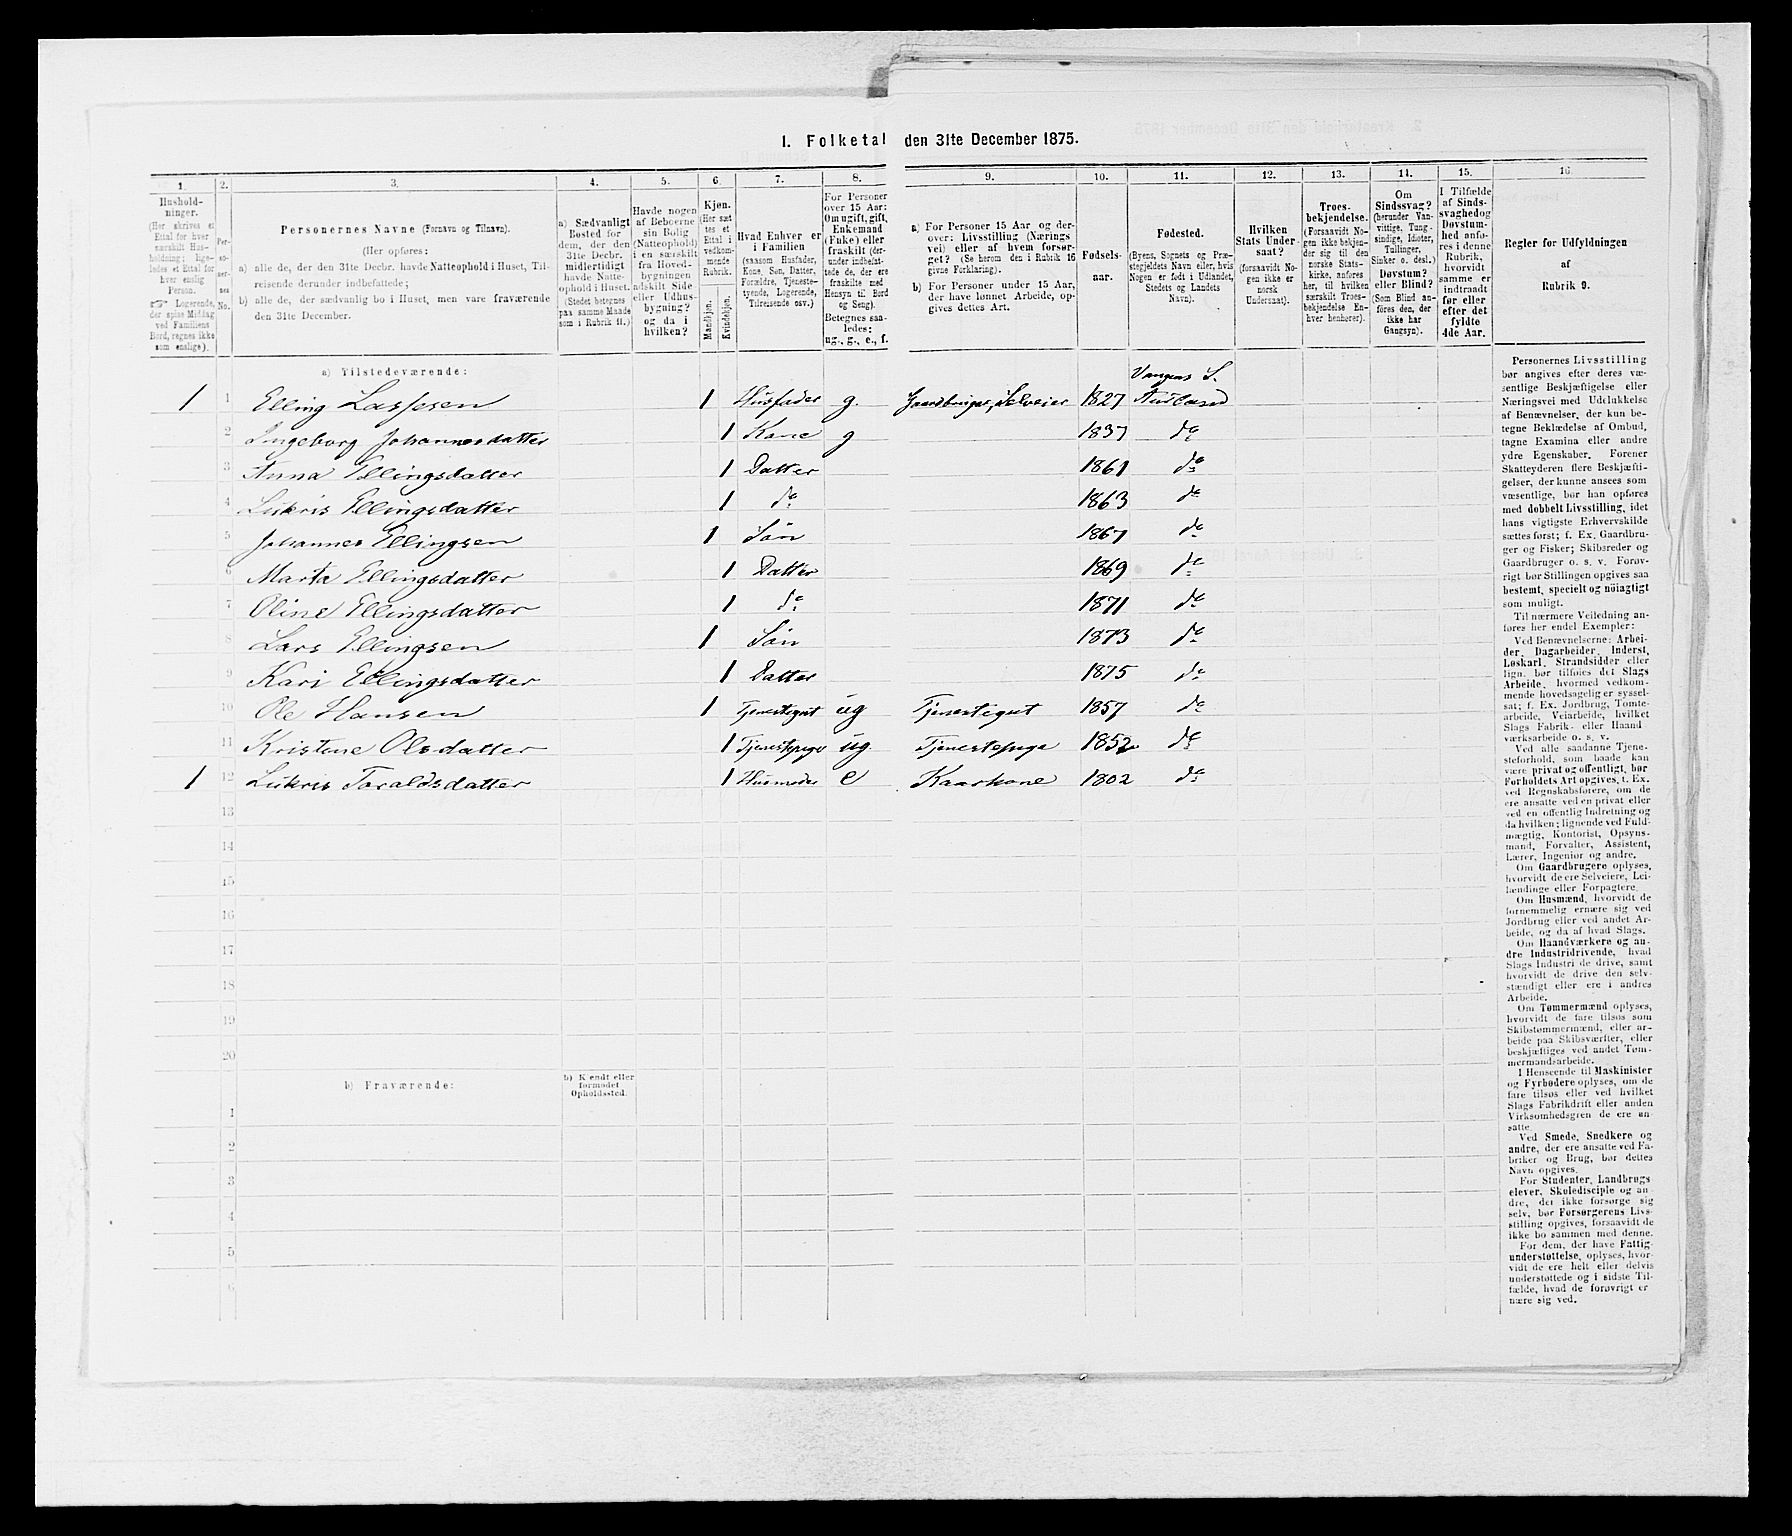 1. Folketal den 31te December 1875.
1.
Hushold-
ninger.
(Her skrives et
Ettal for hver
særskilt Hus-
holdning; lige-
ledes et Ettal for
hver enslig
Person.
Logerende,
der spise Middag
ved Familiens
Bord, regnes ikke
som enslige).
2.
Per-
so-
ner-
nes
No.
3.
Personernes Navne (Fornavn og Tilnavn).
(Her opføres:
a) alle de, der den 31te Decbr. havde Natteophold i Huset, Til-
reisende derunder indbefattede;
b) alle de, der sædvanlig bo i Huset, men vare fraværende
den 31te December.
4.
a) Sædvanligt
Bosted for
dem, der den
31te Decbr.
midlertidigt
havde Natte-
ophold i Huset.
(Stedet betegnes
paa samme Maade
som i Rubrik 11.)
5.
Havde nogen
af Beboerne
sin Bolig
(Natteophold)
i en særskilt
fra Hoved-
bygningen
adskilt Side
eller Udhus-
bygning?
og da i
hvilken?
6.
Kjøn.
(Her sæt
tes et
Ettal i
vedkom-
mende
Rubrik.
Mandkjøn.
Kvindekjøn.
7.
Hvad Enhver er
i Familien
(saasom Husfader,
Kone, Søn, Datter,
Forældre, Tjeneste-
tyende, Logerende,
Tilreisende osv.)
8.
For Personer
over 15 Aar:
Om ugift, gift,
Enkemand
(Enke) eller
fraskilt (der-
under indbefat-
tede de, der ere
fraskilte med
Hensyn til Bord
og Seng).
Betegnes saa-
ledes:
ug., g., e., f.
9.
a) For Personer 15 Aar og der-
over: Livsstilling (Nærings
vei) eller af hvem forsør-
get? (Se herom den i Rubrik 16
givne Forklaring).
b) For Personer under 15 Aar,
der have lønnet Arbeide, op-
gives dettes Art.
10.
Fødsels-
aar.
11.
Fødested.
(Byens, Sognets og Præ-
stegjeldets Navn eller, hvis
Nogen er født i Udlandet,
Stedets og Landets
Navn).
12.
Hvilken
Stats Under-
saat?
(forsaavidt No-
gen ikke er
norsk
Undersaat).
13.
Troes-
bekjendelse.
(Forsaavidt No-
gen ikke bekjen-
der sig til den
norske Stats-
kirke, anføres
her, til hvilken
særskilt Troes-
bekjendelse En-
hver henhører).
14.
Om
Sindssvag?
(herunder Van-
vittige, Tung-
sindige, Idioter,
Tullinger,
Sinker o. desl.)
Døvstum?
eller Blind?
(Som Blind an-
føres den, der
ikke har
Gangsyn).
15.
I Tilfælde
af Sinds-
svaghed og
Døvstum-
hed anfø-
res i denne
Rubrik,
hvorvidt
samme er
indtraadt
før eller
efter det
fyldte
4de Aar.
16.
Regler for Udfyldningen
af
Rubrik 9.
a) Tilstedeværende:
Vangens S.
1 1 Elling Lassesen 1 Husfader g. Gaardbruger, Selveier 1827 Aurland
2 Ingeborg Johannesdatter 1 Kone g 1837 do
3 Anna Ellingsdatter 1 Datter 1861 do
4 Lukris Ellingsdatter 1 do 1863 do
5 Johannes Ellingsen 1 Søn 1867 do
6 Marta Ellingsdatter 1 Datter 1869 do
7 Oline Ellingsdatter 1 do 1871 do
8 Lars Ellingsen 1 Søn 1873 do
9 Kari Ellingsdatter 1 Datter 1875 do
10 Ole Hansen 1 Tjenestegut ug Tjenestegut 1857 do
11 Kristine Olsdatter 1 Tjenestepige ug. Tjenestepige 1852 do
1 12 Lukris Taraldsdatter 1 Husmoder e Kaarkone 1802 do
13
14
15
16
17
18
19
20
b) Fraværende:
b) Kendt eller
formodet
Opholdssted.
1
2
3
4
5
6
Personernes Livsstilling
bør angives efter deres væ-
sentlige Beskjæftigelse eller
Næringsvei med Udelukkelse
af Benævnelser, der kun be-
tegne Beklædelse af Ombud,
tagne Examina eller andre
ydre Egenskaber. Forener
Skatteyderen flere Beskjæfti-
gelser, der kunne ansees som
væsentlige, bør han opføres
med dobbelt Livsstilling, idet
hans vigtigste Erhvervskilde
sættes først; f. Ex. Gaardbru-
ger og Fisker; Skibsreder og
Gaardbruger o. s. v. Forøv-
rigt bør Stillingen opgives saa
bestemt, specielt og nøiagtigt
som muligt.
Til nærmere Veiledning an-
føres her endel Exempler:
Ved Benævnelserne: Arbei-
der, Dagarbeider, Inderst,
Løskarl, Strandsidder eller
lign. bør tilføies det Slags
Arbeide, hvormed vedkom-
mende hovedsagelig er syssel-
sat; f. Ex. Jordbrug, Tomte-
arbeide, Veiarbeide, hvilket
Slags Fabrik- eller Haand
værksarbeide o. s. v.
Ved alle saadanne Tjene-
steforhold, som baade kan
være privat og offentligt, bør
Forholdets Art opgives, t. Ex.
ved Regnskabsførere, om de
ere ansatte ved en privat eller
ved en offentlig Indretning og
da hvilken; lignende ved Fuld-
mægtig, Kontorist, Opsyns-
mand, Forvalter, Assistent,
Lærer, Ingeniør og andre.
Om Gaardbrugere oplyses,
hvorvidt de ere Selveiere, Lei-
lændinge eller Forpagtere.
Om Husmænd, hvorvidt de
fornemmelig ernære sig ved
Jordbrug eller ved andet Ar-
beide, og da af hvad Slags.
Om Haandværkere og an-
dre Industridrivende, hvad
Slags Industri de drive, samt
hvorvidt de drive den selv-
stændigt eller ere i andres
Arbeide.
Om Tømmermænd oplyses,
hvorvidt de fare tilsøs som
Skibstømmermænd, eller ar-
beide paa Skibsværfter, eller
beskjæftiges ved andet Tøm-
mermandsarbeide.
I Henseende til Maskinister
og Fyrbødere oplyses, om de
fare tilsøs eller ved hvilket
Slags Fabrikdrift eller anden
Virksomhedsgren de ere an-
satte.
Ved Smede, Snedkere og
andre, der ere ansatte ved Fa-
briker og Brug, bør dettes
Navn opgives.
For Studenter, Landbrugs-
elever, Skoledisciple og an-
dre, der ikke forsørge sig
selv, bør Forsørgerens Livs-
stilling opgives, forsaavidt de
ikke bo sammen med denne.
For dem, der have Fattig-
understøttelse, oplyses, hvor-
vidt de ere helt eller delvis
understøttede og i sidste Til-
fælde, hvad de forøvrigt er
nære sig ved.